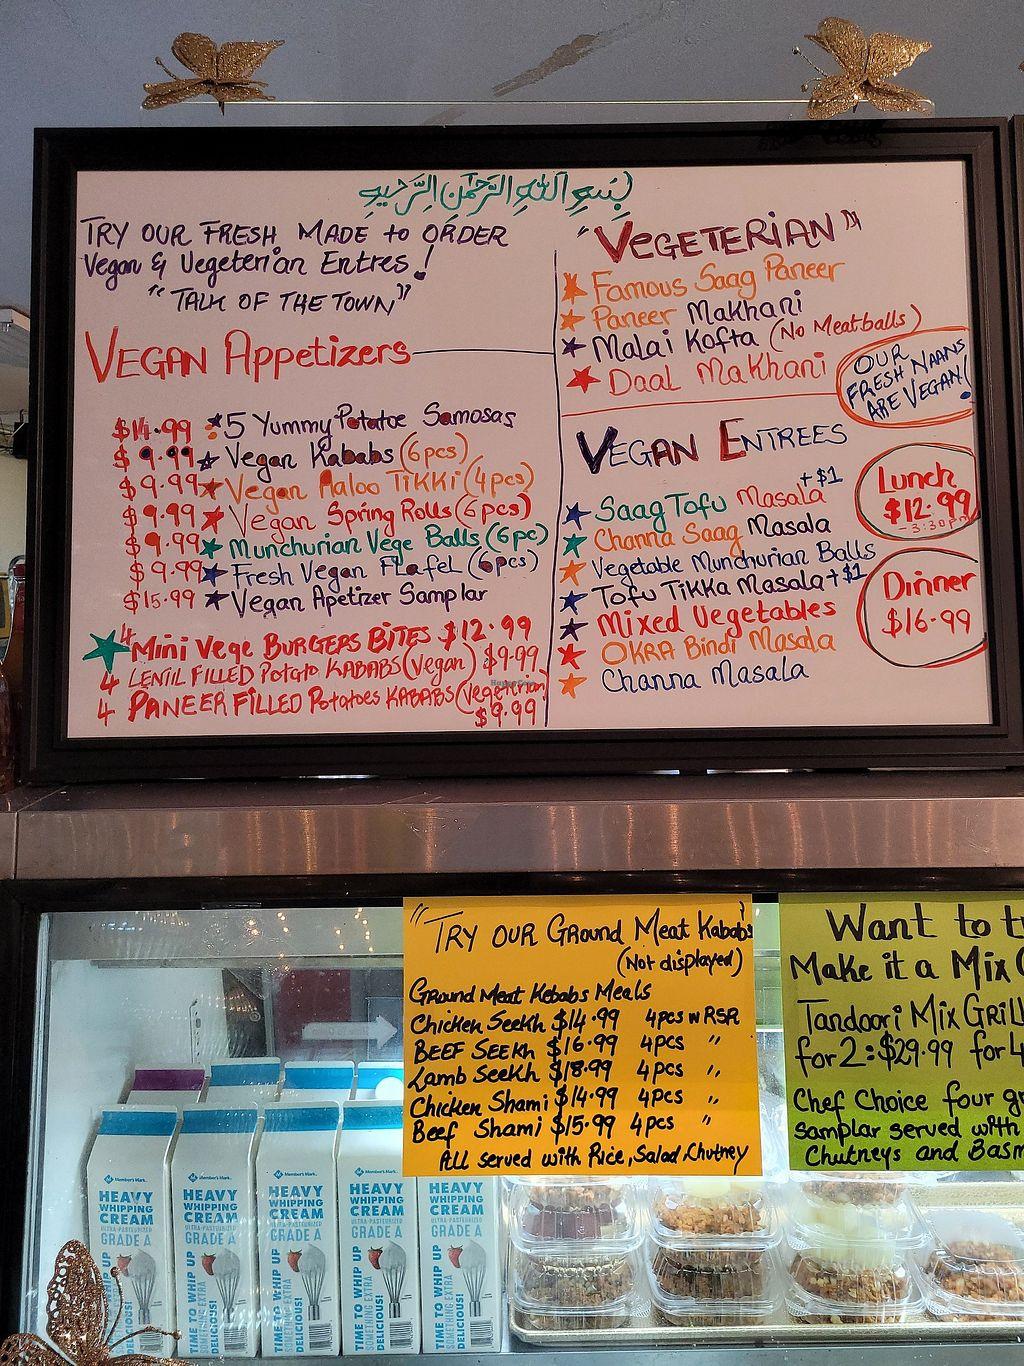 بِسْمِ اللهِ الرَّحْمٰنِ الرَّحِيمِ
TRY OUR FRESH MADE to ORDER
Vegan & Vegeterian Entres!
"TALK OF THE TOWN"
VEGAN Appetizers
$14.99 5 Yummy Potatoe Samosas
$9.99 Vegan Kababs (6pcs)
$9.99 Vegan Aaloo TiKKi (4pcs)
$9.99 Vegan Spring Rolls (6pcs)
$9.99 Munchurian Vege Balls (6pc)
$9.99 Fresh Vegan FLafeL (6pcs)
$15.99 Vegan Apetizer Samplar
4 Mini Vege BURGERS BiTES $12.99
4 LENIL FILLED Potato KABABS (Vegan) $9.99
4 PANEER FiLLED Potatoes KABABS (Vegeterian)
$9.99
"VEGETERiAN"
Famous Saag Paneer
Paneer Makhani
Malai Kofta (No Meatballs)
Daal Makhani
OUR
FRESH NAANS
ARE VEGAN!
VEGAN ENTREES
Saag Tofu Masala +$1
Channa Saag Masala
Vegetable Munchurian Balls
Tofu TiKKa Masala +$1
Mixed Vegetables
OKRA Bindi Masala
Channa Masala
Lunch
$12.99
-3:30pm
Dinner
$16.99
HappyCow
"TRY OUR Ground Meat Kabab's
(Not displayed)
Ground Meat Kebabs Meals
Chicken Seekh $14.99 4pcs w RSR
BEEF SEEKh $16.99 4pcs "
Lamb Seekh $18.99 4pcs "
Chicken Shami $14.99 4pcs "
Beef Shami $15.99 4pcs "
All served with Rice, Salad, Chutney
Want to t
Make it a Mix
Tandoori Mix GriLL
for 2: $29.99 for 4
Chef Choice four g
Samplar served with
Chutneys and Basm
Member's Mark
HEAVY
WHIPPING
CREAM
ULTRA-PASTEURIZED
GRADE A
TIME TO WHIP UP
SOMETHING EXTRA
DELICIOUS!
Member's Mark
HEAVY
WHIPPING
CREAM
ULTRA-PASTEURIZED
GRADE A
TIME TO WHIP UP
SOMETHING EXTRA
DELICIOUS!
Member's Mark
HEAVY
WHIPPING
CREAM
ULTRA-PASTEURIZED
GRADE A
TIME TO WHIP UP
SOMETHING EXTRA
DELICIOUS!
Member's Mark
HEAVY
WHIPPING
CREAM
ULTRA-PASTEURIZED
GRADE A
TIME TO WHIP UP
SOMETHING EXTRA
DELICIOUS!
HEAVY
WHIPPING
CREAM
ULTRA-PASTEURIZED
GRADE A
TIME TO WHIP UP
SOMETHING EXTRA
DELICIOUS!